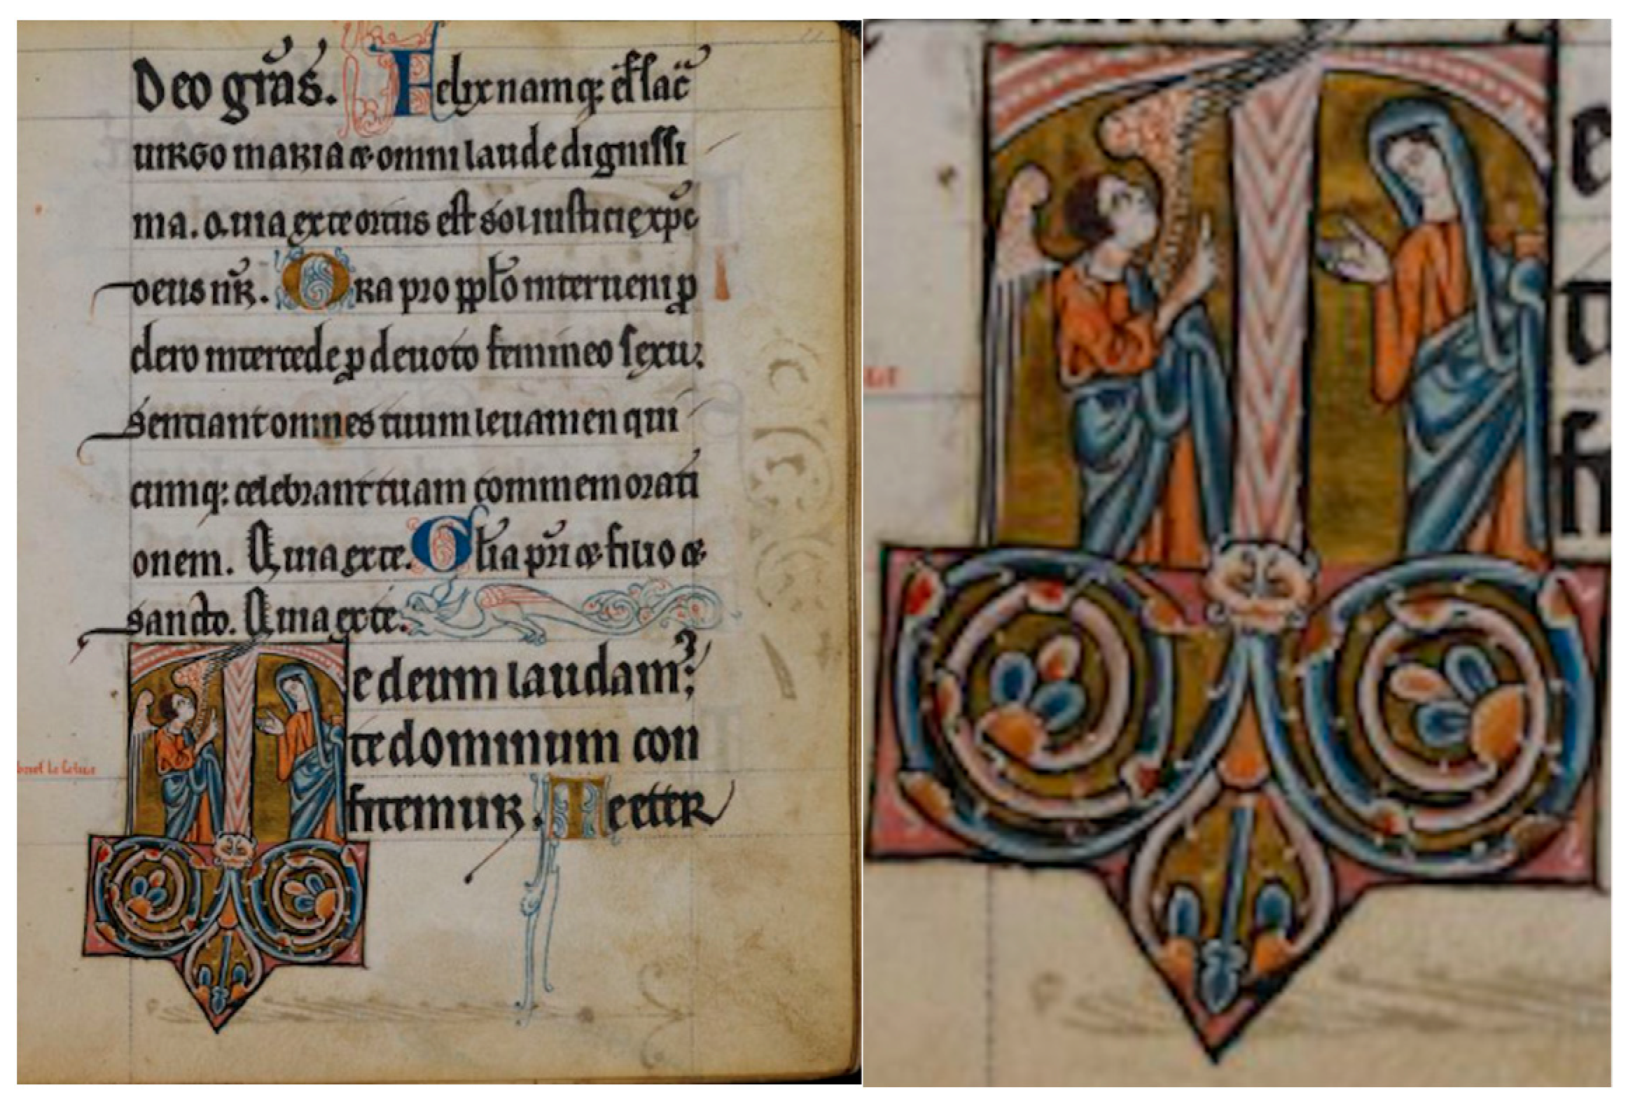 Deo grās. Felix namq; est sac̄
uirgo maria & omni laude digniſſi
ma. Quia ex te ortus eſt sol iuſticie xp̄c
deus nr̄. Ora pro pplo interueni p
clero intercede p deuoto femineo ſexu
sentiant omnes tuum leuamen qui
cumq; celebrant tuam commemorati
onem. Quia ex te. Gl̄ia pr̄i & filio &
sancto. Quia ex te.
Te deum laudam;
te dominum con
fitemur. Te eter